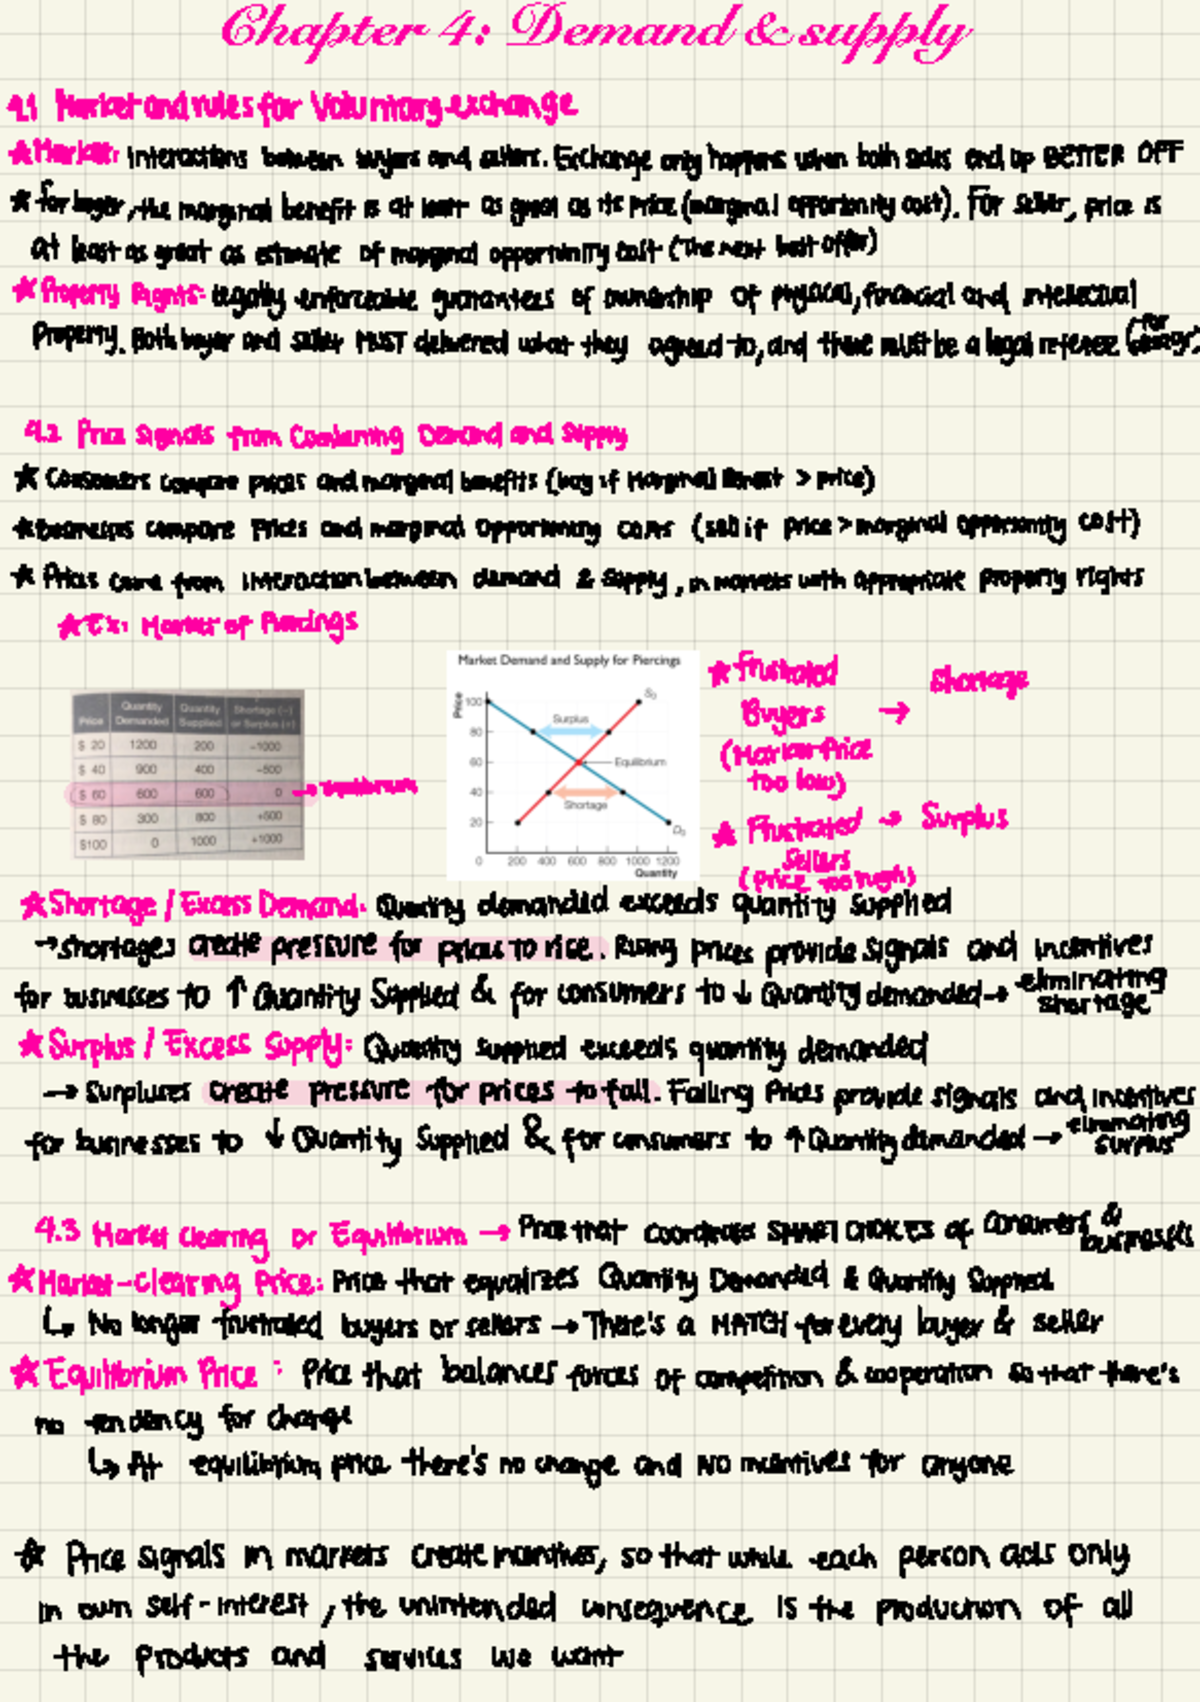 Chapter 4: Demand & supply
4.1 Market and rules for Voluntary exchange
★ Market: Interactions between buyers and sellers. Exchange only happens when both sides end up BETTER OFF
★ for buyer, the marginal benefit is at least as great as its price (marginal opportunity cost). For seller, price is
at least as great as estimate of marginal opportunity cost (the next best offer)
★ Property Rights: legally enforceable guarantees of ownership of physical, financial and intellectual
Property. Both buyer and seller MUST delivered what they agreed to, and there must be a legal referee (for
4.2 Price Signals from Combining Demand and Supply
★ Consumers compare prices and marginal benefits (buy if Marginal Benefit > price)
★ Businesses compare Prices and marginal Opportunity costs (sell if price > marginal opportunity cost)
★ Prices come from interaction between demand & Supply, in markets with appropriate property rights
★ Ex: Market of Piercings
Price Quantity Demanded Quantity Supplied Shortage (–) or Surplus (+)
$ 20 1200 200 –1000
$ 40 900 400 –500
$ 60 600 600 0 → equilibrium
$ 80 300 800 +500
$100 0 1000 +1000
Market Demand and Supply for Piercings
Price
100
80
60
40
20
0 200 400 600 800 1000 1200
Quantity
S₀
Surplus
Equilibrium
Shortage
D₀
★ Frustrated Shortage
Buyers →
(Market Price
too low)
★ Frustrated → Surplus
Sellers
(Price too high)
★ Shortage / Excess Demand: Quantity demanded exceeds quantity supplied
→ shortages create pressure for prices to rice. Rising prices provide signals and incentives
for businesses to ↑ Quantity Supplied & for consumers to ↓ Quantity demanded → eliminating
shortage
★ Surplus / Excess Supply: Quantity supplied exceeds quantity demanded
→ Surpluses create pressure for prices to fall. Falling Prices provide signals and incentives
for businesses to ↓ Quantity Supplied & for consumers to ↑ Quantity demanded → eliminating
surplus
4.3 Market Clearing or Equilibrium → Price that coordinates SMART CHOICES of consumers &
businesses
★ Market-clearing Price: Price that equalizes Quantity Demanded & Quantity Supplied
↳ No longer frustrated buyers or sellers → There's a MATCH for every buyer & seller
★ Equilibrium Price: Price that balances forces of competition & cooperation so that there's
no tendency for change
↳ At equilibrium price there's no change and NO incentives for anyone
★ Price signals in markets create incentives, so that while each person acts only
in own self-interest, the unintended consequence is the production of all
the products and services we want